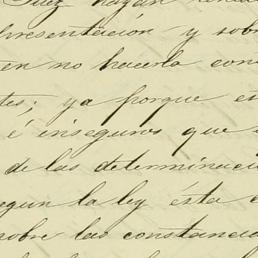 Juez hayan
presentación y sob
en no hacerla con
tes; ya porque es
é inseguros que
de las determinaci
segun la ley ésta
sobre las constancia